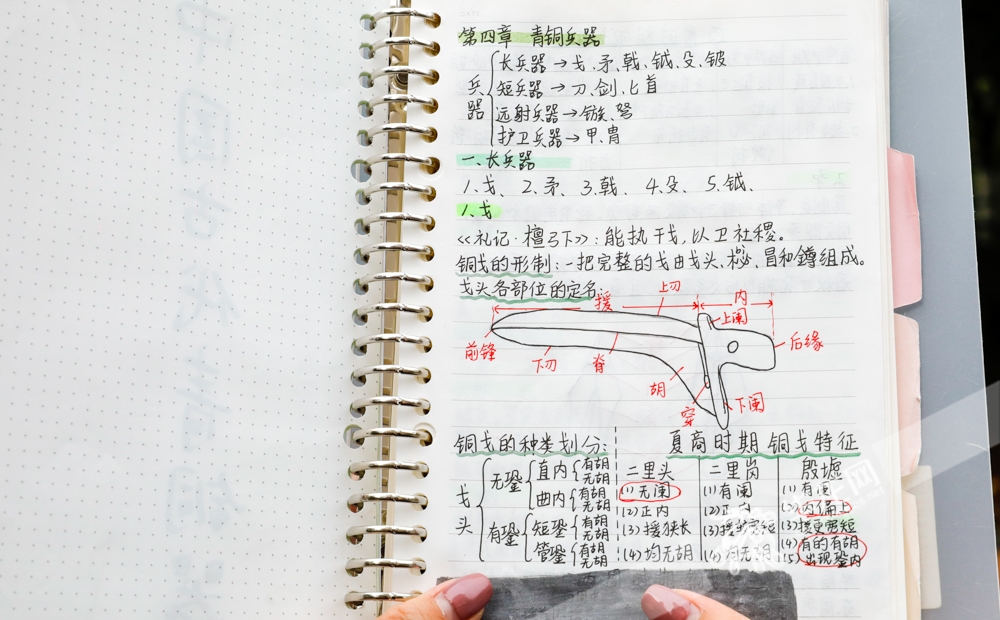 第四章 青铜兵器
兵器
长兵器→戈、矛、戟、钺、殳、铍
短兵器→刀、剑、匕首
远射兵器→镞、弩
护卫兵器→甲、胄
一、长兵器
1.戈、 2.矛、 3.戟、 4.殳、 5.钺、
1.戈
《礼记·檀弓下》:能执干戈,以卫社稷。
铜戈的形制:一把完整的戈由戈头、柲、冒和鐏组成。
戈头各部位的定名:
援
上刃
内
上阑
后缘
前锋
下刃
脊
胡
穿
下阑
铜戈的种类划分:
戈头
无銎
直内
有胡
无胡
曲内
有胡
无胡
有銎
短銎
有胡
无胡
管銎
有胡
无胡
夏商时期铜戈特征
二里头
(1)无阑
(2)正内
(3)援狭长
(4)均无胡
二里岗
(1)有阑
(2)正内
(3)援宽短
(4)均无胡
殷墟
(1)有阑
(2)内偏上
(3)援更宽短
(4)有的有胡
(5)出现銎内